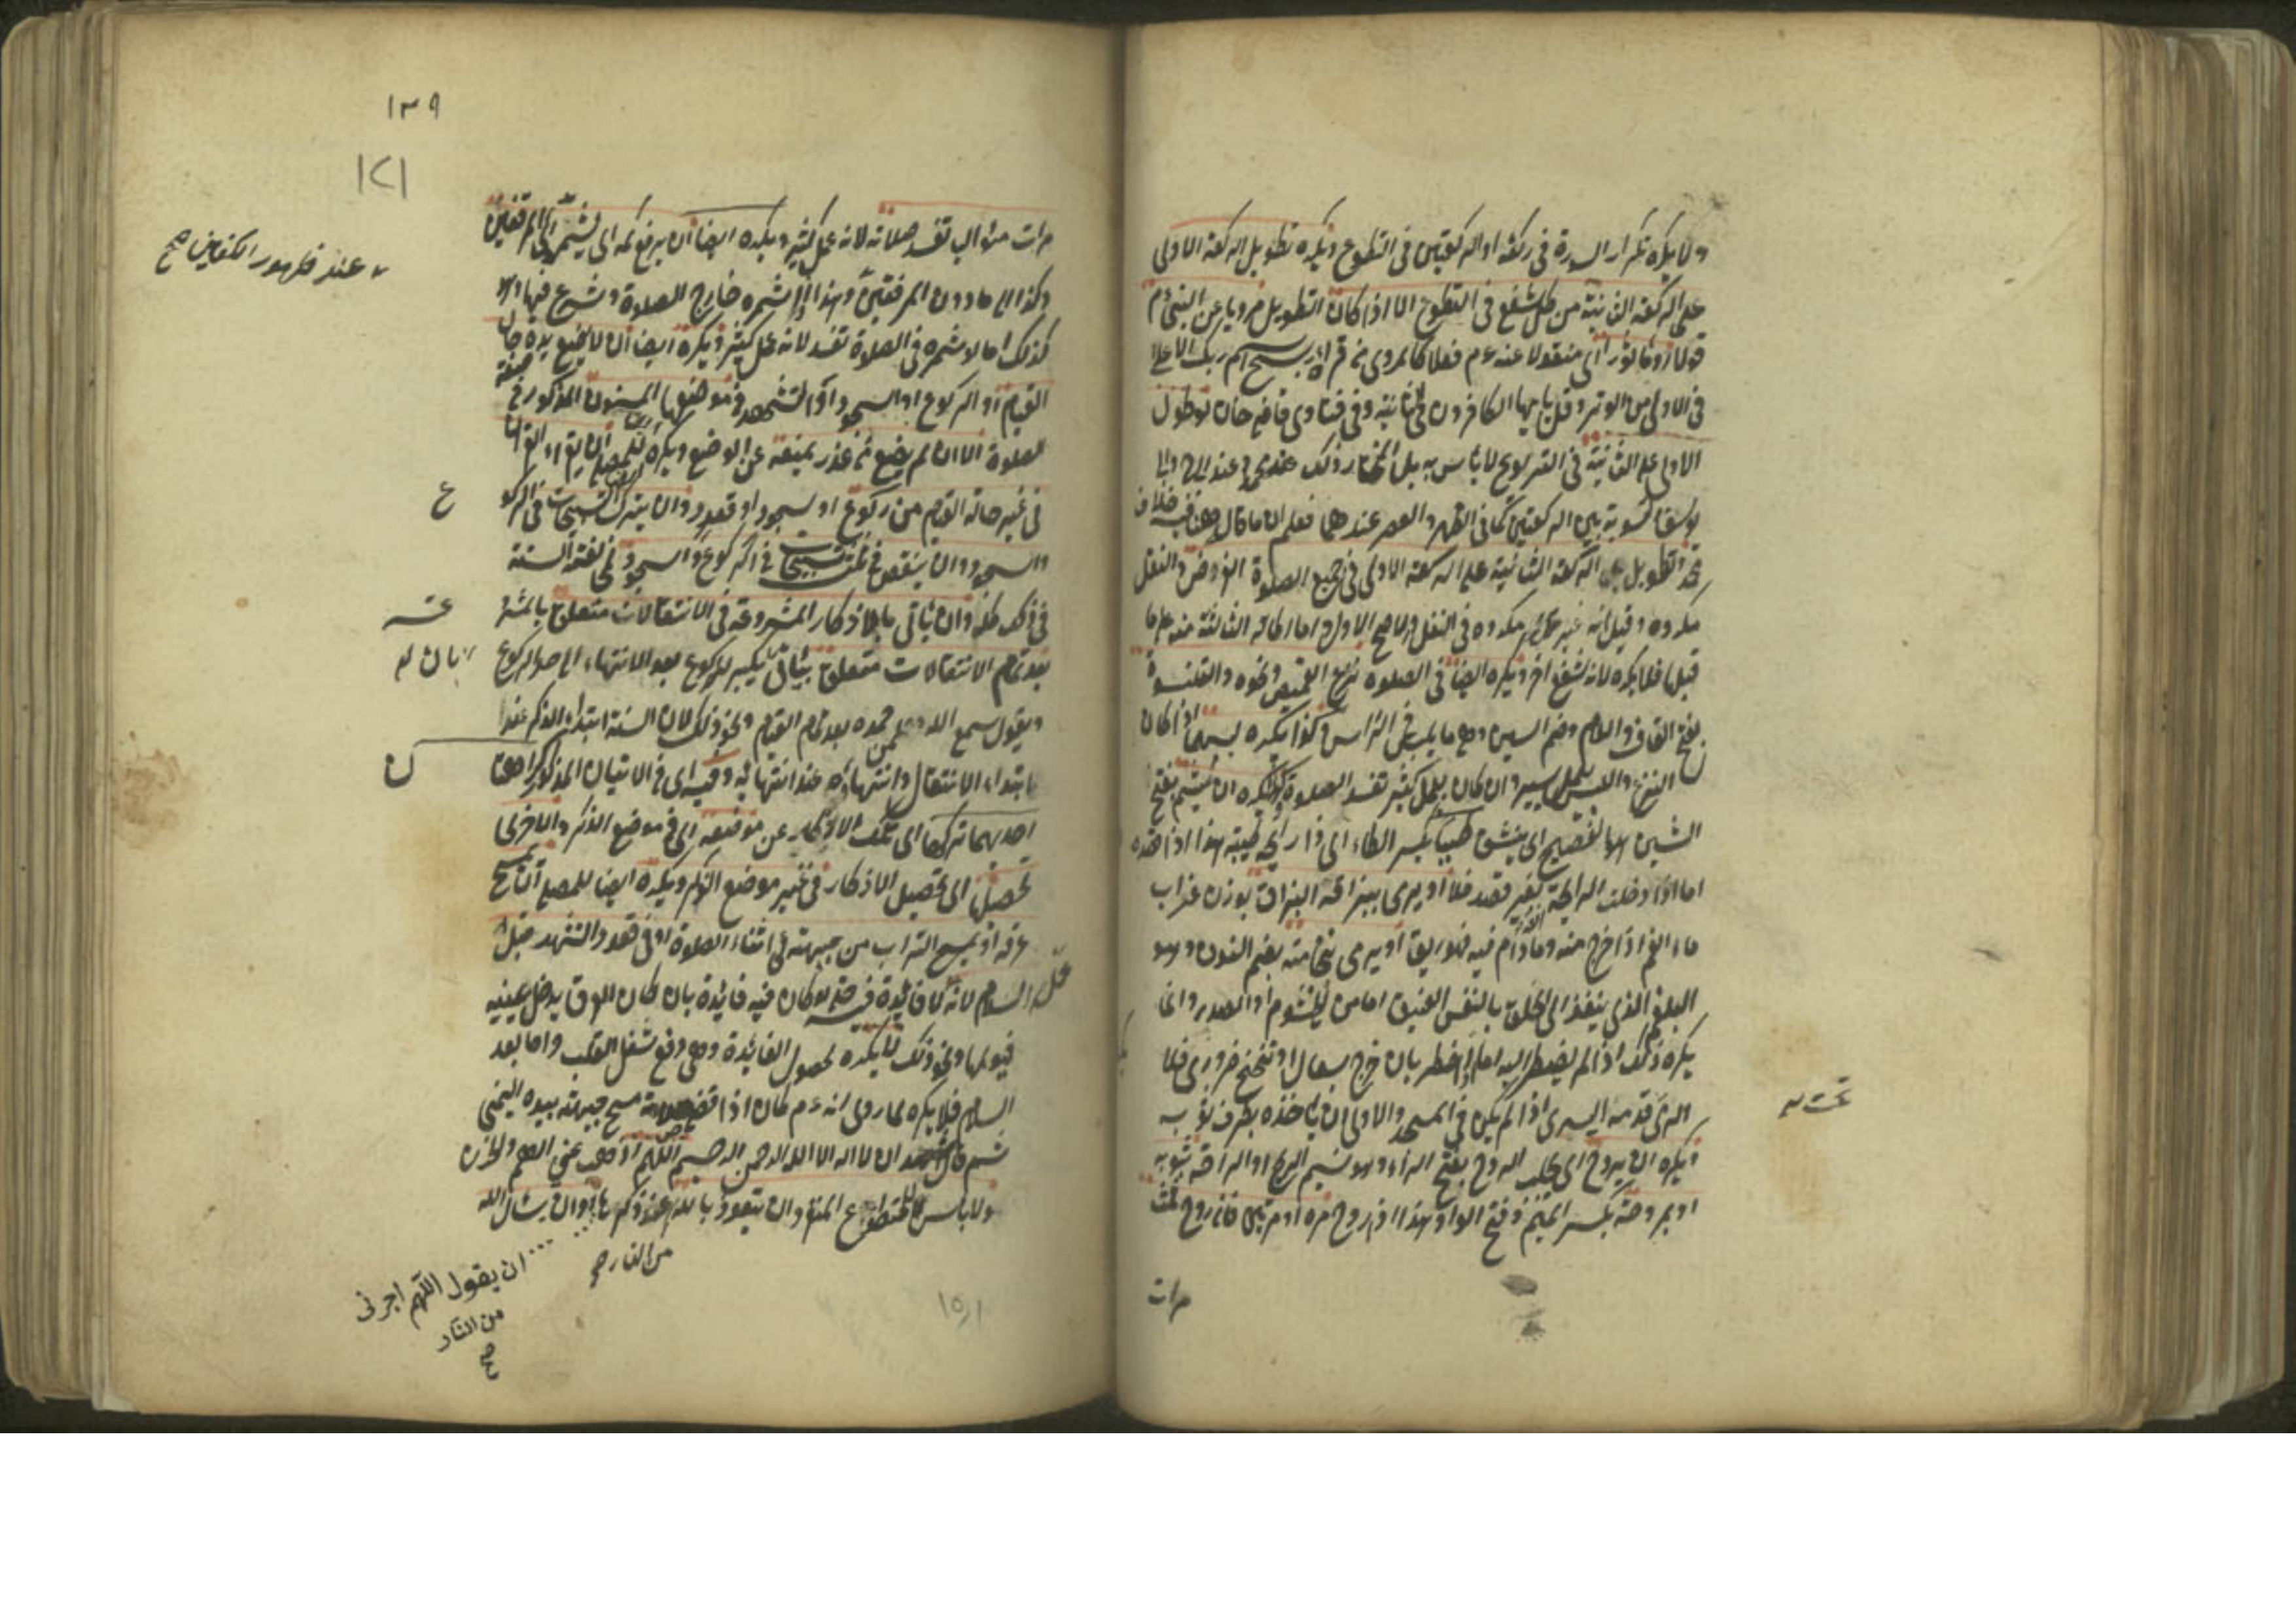 ولا يكره تكرار السورة في ركعة او الركعتين في التطوع ويكره تطويل الركعة الاولى
على الركعة الثانية من كل شفع في التطوع الا اذا كان التطويل مرويا عن النبي ءم
قولا او ماثورا اى منقولا عنه ءم فعلا كما روى انه قرأ سبح اسم ربك الاعلا
في الاولى من الوتر وقل يا يها الكافرون في الثانية وفي فتاوى قاضي خان لو طول
الاولى على الثانية في التراويح لا باس به بل المختار ذلك عند محمد وعند ابي ح وابى
يوسف التسوية بين الركعتين كما في الظهر والعصر عندهما فعلم ان ما قال المص فيه خلاف
محمد وتطويل الركعة الثانية على الركعة الاولى في جميع الصلوة الفرض والنفل
مكروه وقيل انه غير مكروه في النفل والاصح الاول واما اطالة الثالثة منه على ما
قبلها فلا يكره لانه شفع اخر ويكره ايضا في الصلوة نزع القميص ونحوه والقلنسوة
بفتح القاف واللام وضم السين وهو ما يلبس في الراس وكذا يكره لبسهما اذا كان
النزع واللبس بعمل يسير وان كان بعمل كثير تفسد الصلوة ويكره ان يشم بفتح
الشين هو الفصيح اى ينشق طيبا بكسر الطاء اى ذا رايحة طيبة هذا اذا قصده
اما اذا دخلت الرايحة بغير قصد فلا او يرمى ببزاقه البزاق بوزن غراب
ماء الفم اذا خرج منه وما دام فيه فهو ريق او يرمى نخامته بضم النون وهو
البلغم الذى ينفذ الى الحلق بالنفس العنيف اما من الخيشوم او الصدر وانما
يكره ذلك اذا لم يضطر اليه اما اذا اضطر بان خرج بسعال او تنحنح ضرورى فلا
الرمى قدمه اليسرى اذا لم يكن في المسجد والاولى ان ياخذه بطرف ثوبه
تحت
ويكره ان يروح اى يجلب الروح بفتح الراء وهو نسيم الريح او الراحة بثوبه
او بمروحة بكسر الميم وفتح الواو هذا اذا روح مرة او مرتين فان روح ثلث
مرات
١٣٩
١٢١
مرات متوالية تفسد صلاته لانه عمل كثير ويكره ايضا ان يرفع كمه اى يشمره الى المرفقين
عند ظهور الكفين صح
وكذا الى ما دون المرفقين وهذا اذا شمره خارج الصلوة وشرع فيها وهو
كذلك اما لو شمره في الصلوة تفسد لانه عمل كثير ويكره ايضا ان لا يضع يده حال
القيام او الركوع او السجود او التشهد في موضعها المسنون المذكور في صفة
الصلوة الا ان لم يضع لعذر يمنعه عن الوضع ويكره للمصلى ان يقرأ القرأن
في غير حالة القيام من ركوع او سجود او قعود وان يترك التسبيحات في الركو
ع
والسجود وان ينقص من ثلث تسبيحات في الركوع والسجود لمخالفة السنة
في ذلك كله وان ياتي بالاذكار المشروعة في الانتقالات متعلق بالمشرو
عة
بعد تمام الانتقالات متعلق بياتي بان يكبر للركوع بعد الانتهاء الى حد الركوع
ويقول سمع الله لمن حمده بعد تمام القيام ونحو ذلك لان السنة ابتداء الذكر عند
ابتداء الانتقال وانتهاؤه عند انتهائه وفيه اى في الاتيان المذكور كراهتا
ن
احديهما تركها اى تلك الاذكار عن موضعه اى في موضع الذكر والاخرى
تحصيلها اى تحصيل الاذكار في غير موضع الذكر ويكره ايضا للمصلى ان يمسح
عرقه او يمسح التراب من جبهته في اثناء الصلوة او في قعود التشهد قبل
السلام لانه لا فائدة فيه حتى لو كان فيه فائدة بان كان العرق يدخل عينيه
فيؤلمها ونحو ذلك لا يكره لحصول الفائدة وهى دفع شغل القلب واما بعد
السلام فلا يكره لما روى انه ءم كان اذا قضى صلاته مسح جبهته بيده اليمنى
ثم قال اشهد ان لا اله الا الله الرحمن الرحيم اللهم اذهب عني الهم والحزن
ولا باس للمتطوع المنفرد ان يتعوذ بالله عند ذكر النار وان يسال الله
من النار صح
ان يقول اللهم اجرنى
من النار
صح